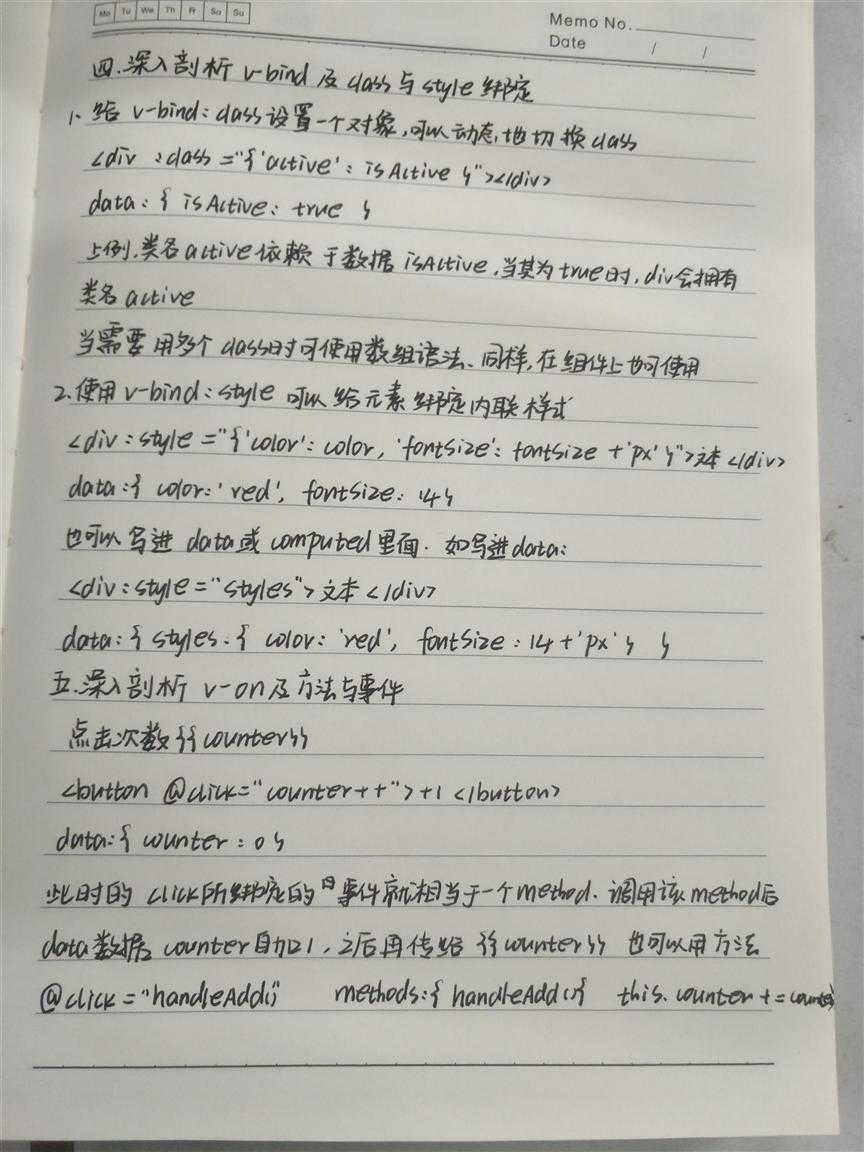 Mo Tu We Th Fr Sa Su
Memo No.
Date / /
四.深入剖析 v-bind 及 class 与 style 绑定
1、给 v-bind:class设置一个对象,可以动态地切换 class
<div :class="{'active': isActive }"></div>
data: { isActive: true }
上例,类名active依赖于数据 isActive,当其为true时,div会拥有
类名 active
当需要用多个class时可使用数组语法、同样,在组件上也可使用
2.使用 v-bind:style 可以给元素绑定内联样式
<div:style="{'color': color, 'fontSize': fontsize +'px'}">文本</div>
data:{ color:'red', fontsize: 14}
也可以写进 data或 computed里面. 如写进data:
<div:style="styles">文本</div>
data:{ styles:{ color:'red', fontSize:14+'px'} }
五.深入剖析 v-on及方法与事件
点击次数{{counter}}
<button @click="counter++">+1</button>
data:{ counter: 0}
此时的 click所绑定的 事件就相当于一个method.调用该method后
data数据 counter自加1,之后再传给 {{counter}} 也可以用方法
@click="handleAdd()" methods:{ handleAdd(){ this.counter +=